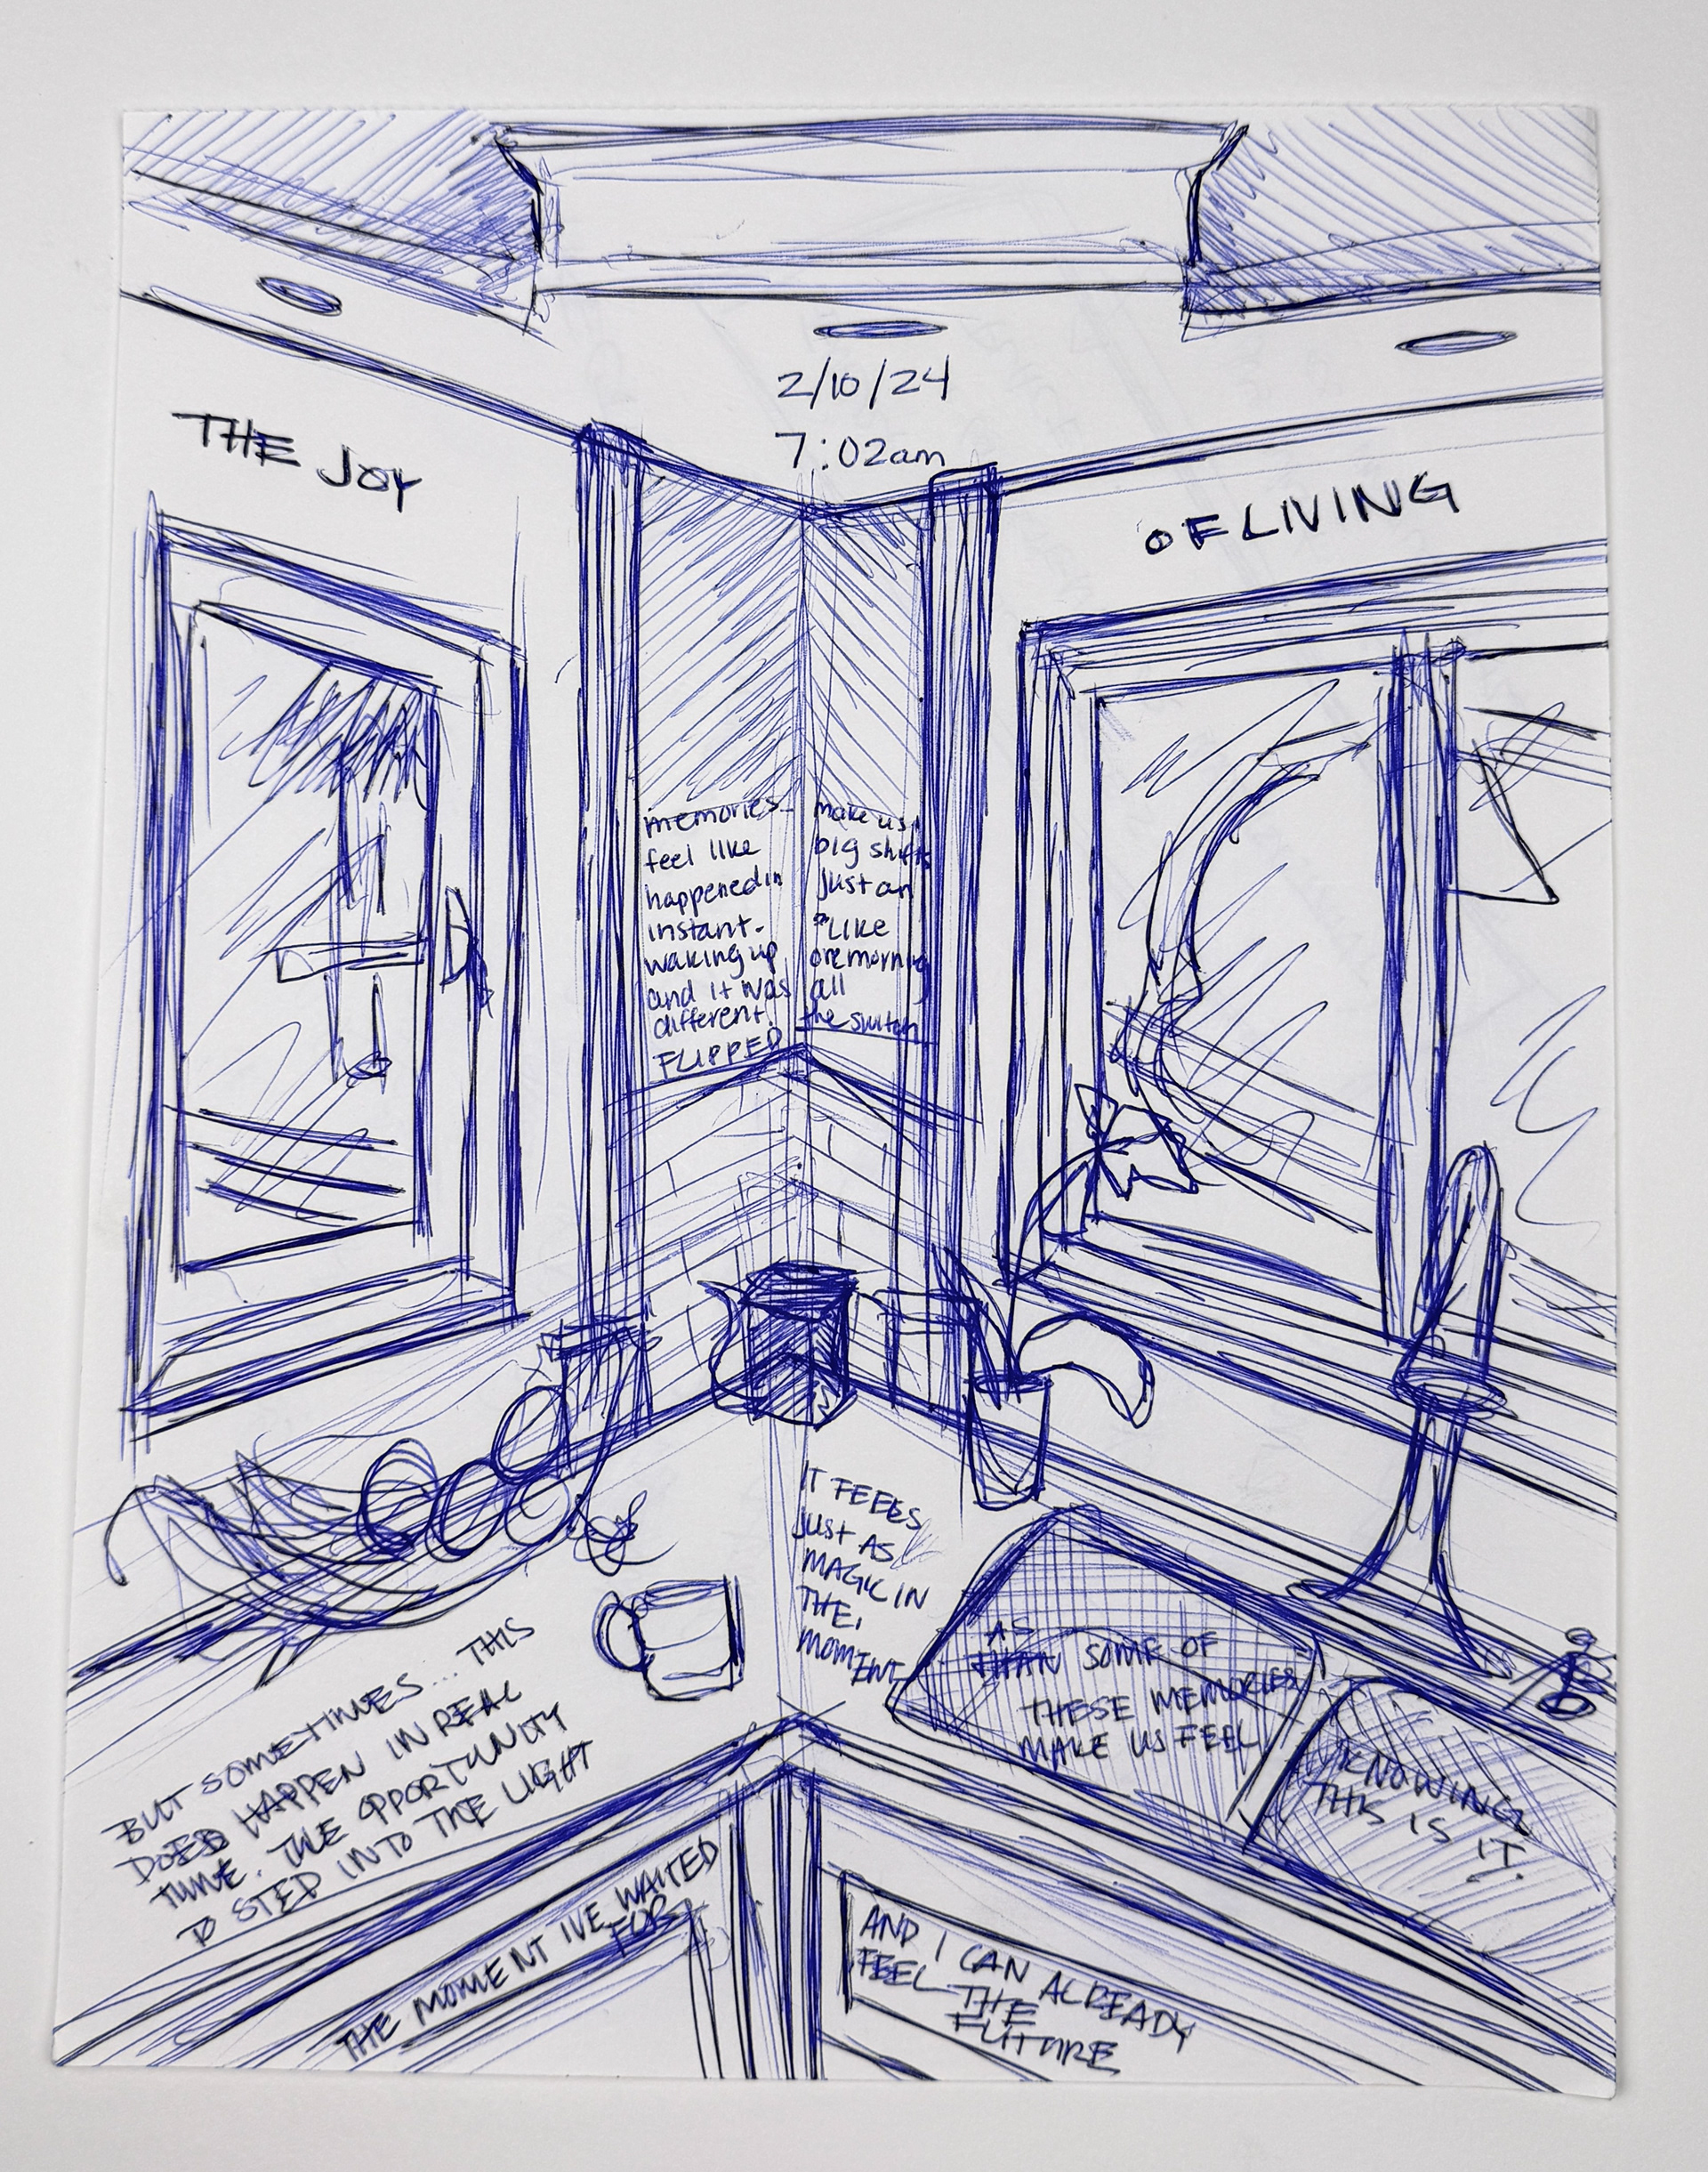 2/10/24
7:02am
THE JOY
OF LIVING
memories make us
feel like big shifts
happened in just an
instant. Like
waking up one morning
and it was all
different. the switch
FLIPPED
BUT SOMETIMES... THIS
DOES HAPPEN IN REAL
TIME. THE OPPORTUNITY
TO STEP INTO THE LIGHT
IT FEELS
JUST AS
MAGIC IN
THE
MOMENT
AS
THAN SOME OF
THESE MEMORIES
MAKE US FEEL
KNOWING
THIS IS IT.
THE MOMENT IVE WAITED
FOR
AND I CAN ALREADY
FEEL THE
FUTURE